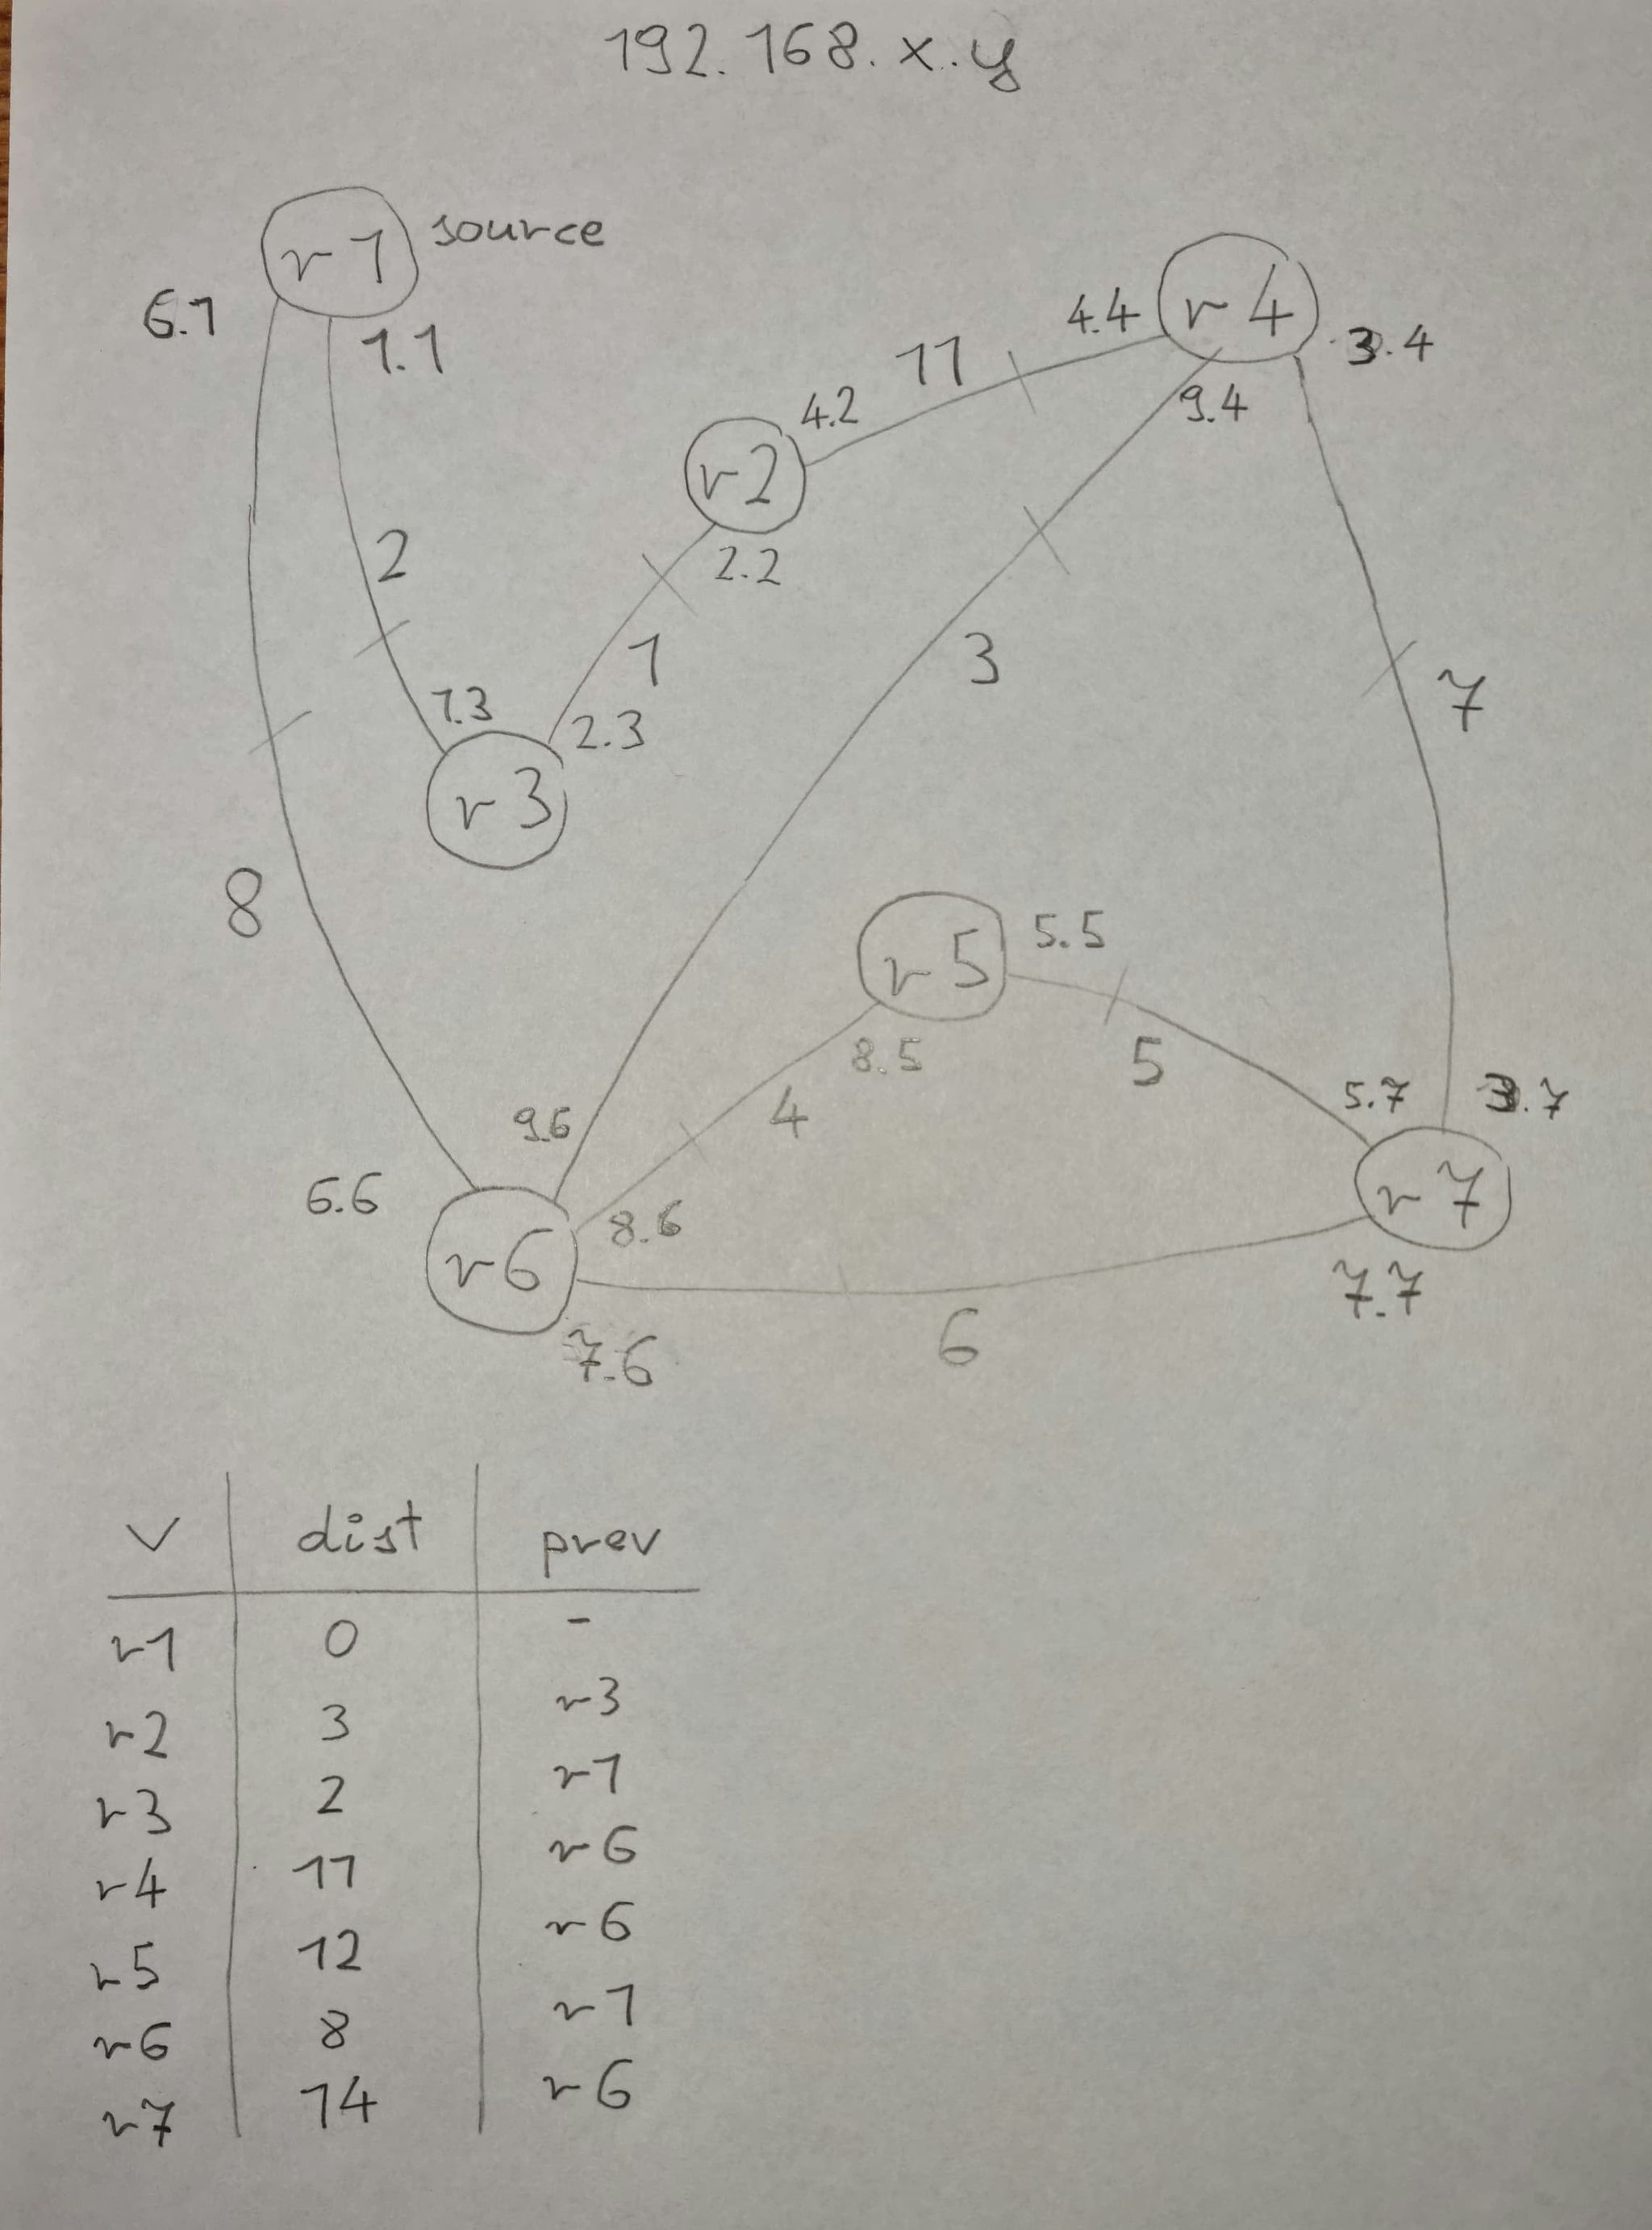 192.168.x.y
r1 source
6.1
1.1
4.4
r4
3.4
11
9.4
4.2
r2
2
2.2
1
3
7
1.3
2.3
r3
8
r5
5.5
8.5
5
4
5.7
3.7
9.6
6.6
8.6
r7
r6
7.7
6
7.6
v dist prev
r1 0 -
r2 3 r3
r3 2 r1
r4 11 r6
r5 12 r6
r6 8 r1
r7 14 r6